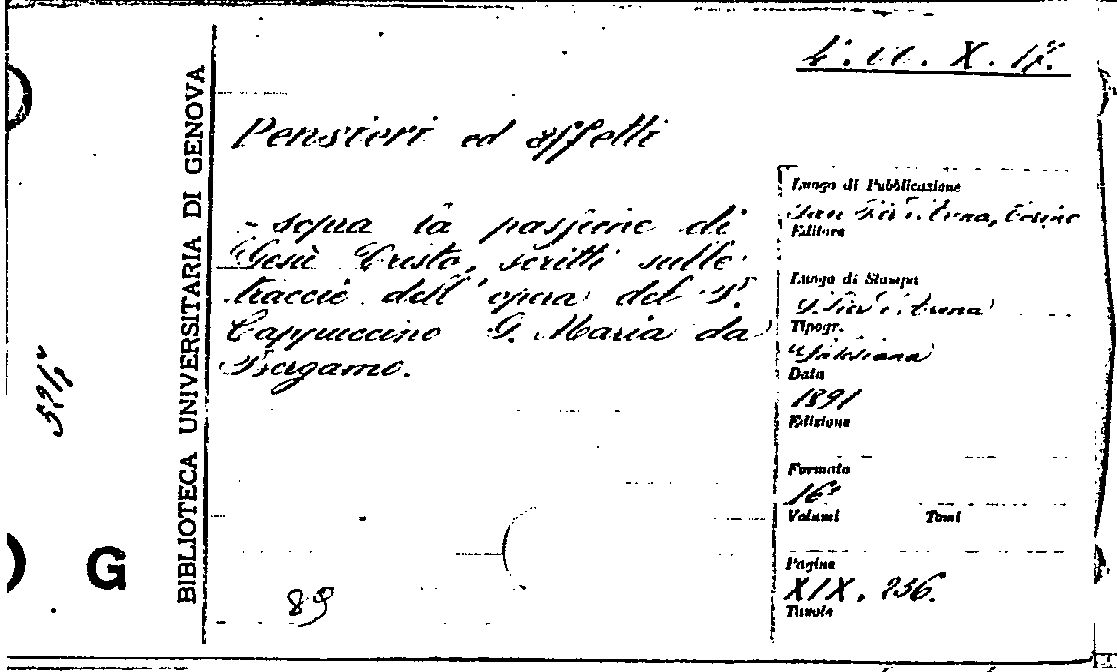 4°. VV. X. 17.
BIBLIOTECA UNIVERSITARIA DI GENOVA
G
Pensieri ed affetti
- sopra la passione di
Gesù Cristo, scritti sulle
traccie dell'opera del P.
Cappuccino G. Maria da
Bergamo.
89
Luogo di Pubblicazione
San Pier d'Arena, Torino
Editore
Luogo di Stampa
S. Pier d'Arena
Tipogr.
Salesiana
Data
1891
Edizione
Formato
16°
Volumi Tomi
Pagine
XIX. 256.
Tavole